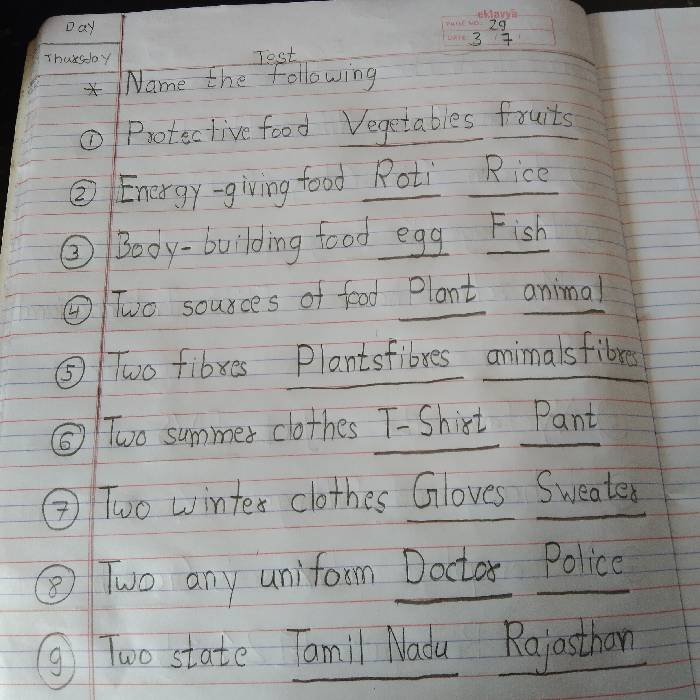 Day
eklavya
PAGE NO. 29
DATE 3 7
Thursday
Test
* Name the following
1 Protective food Vegetables fruits
2 Energy-giving food Roti Rice
3 Body-building food egg Fish
4 Two sources of food Plant animal
5 Two fibres Plantsfibres animalsfibres
6 Two summer clothes T-Shirt Pant
7 Two winter clothes Gloves Sweater
8 Two any uniform Doctor Police
9 Two state Tamil Nadu Rajasthan